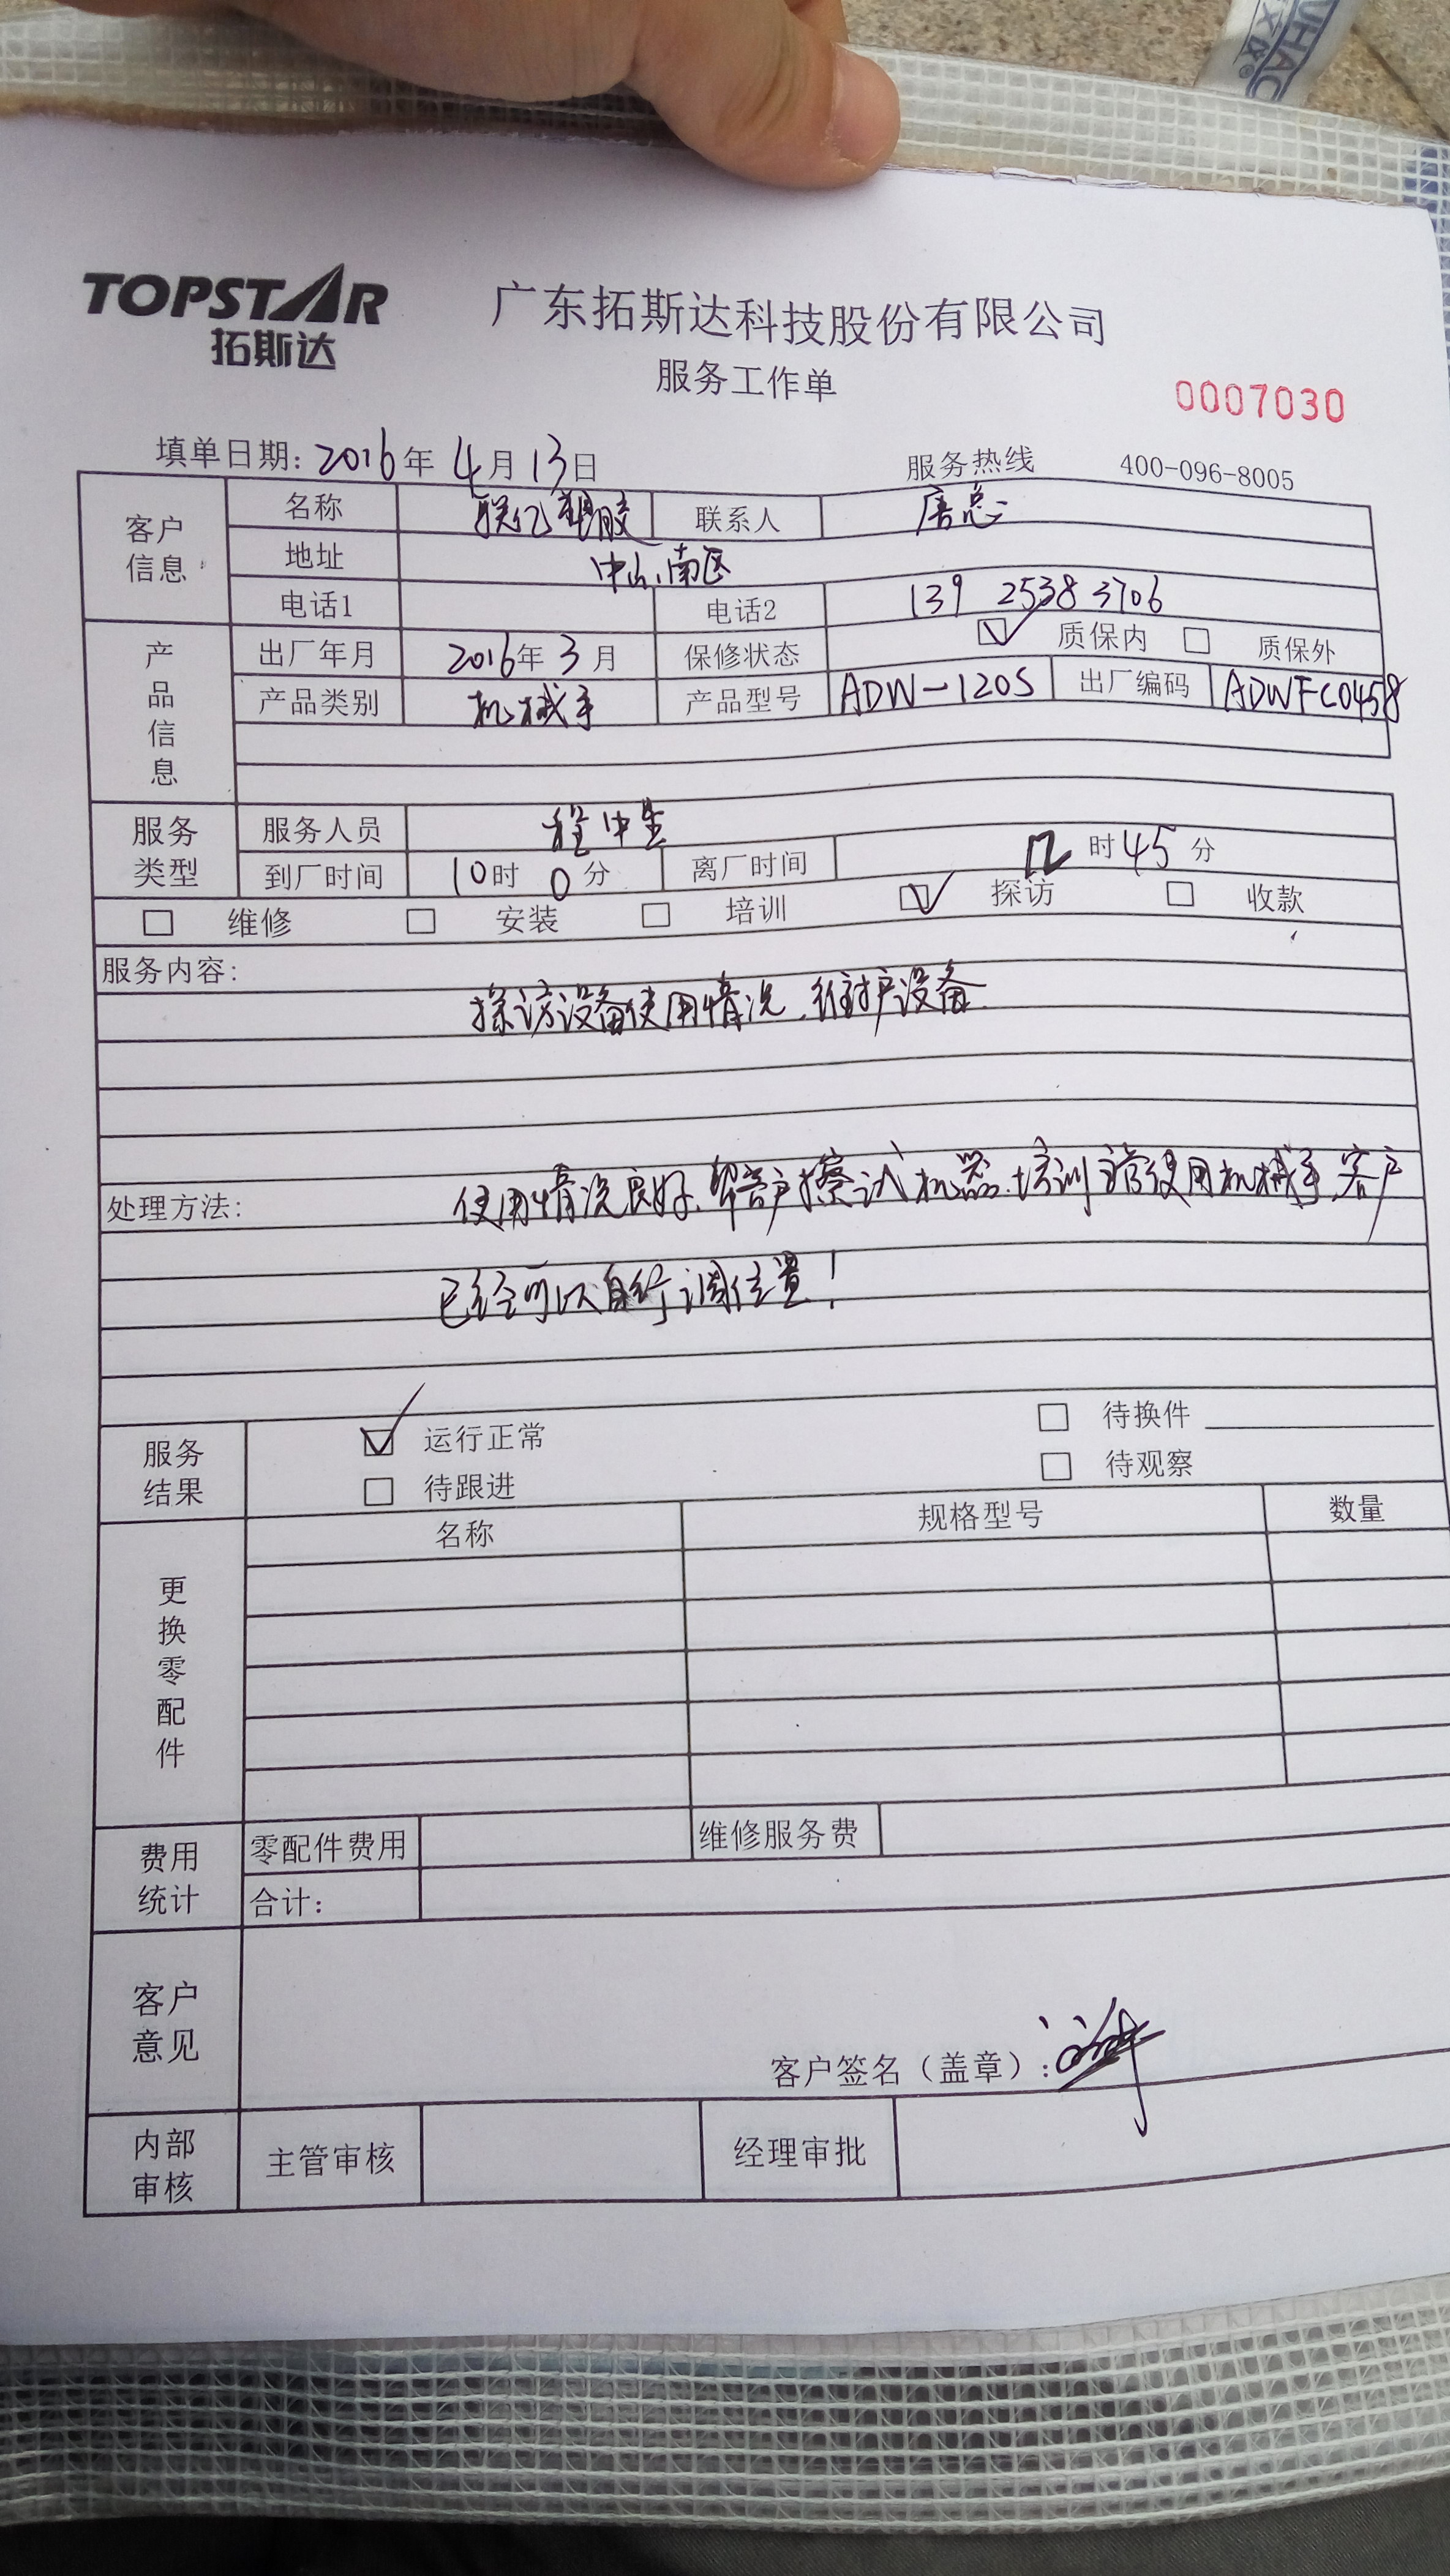 TOPSTAR
拓斯达
广东拓斯达科技股份有限公司
服务工作单
0007030
填单日期: 2016年 4月 13日
服务热线 400-096-8005
客户信息
名称 联亿塑胶 联系人 唐总
地址 中山南区
电话1 电话2 139 2538 3706
产品信息
出厂年月 2016年 3月 保修状态 质保内 质保外
产品类别 机械手 产品型号 ADW-120S 出厂编码 ADWFC0458
服务类型
服务人员 程中生
到厂时间 10时 0分 离厂时间 12时45分
维修 安装 培训 探访 收款
服务内容:
探访设备使用情况,维护设备
处理方法: 使用情况良好,帮客户擦试机器.培训 使用机械手,客户
已经可以自行调位置!
服务结果
运行正常 待换件
待跟进 待观察
更换零配件
名称 规格型号 数量
费用统计
零配件费用 维修服务费
合计:
客户意见
客户签名(盖章):
内部审核
主管审核 经理审批